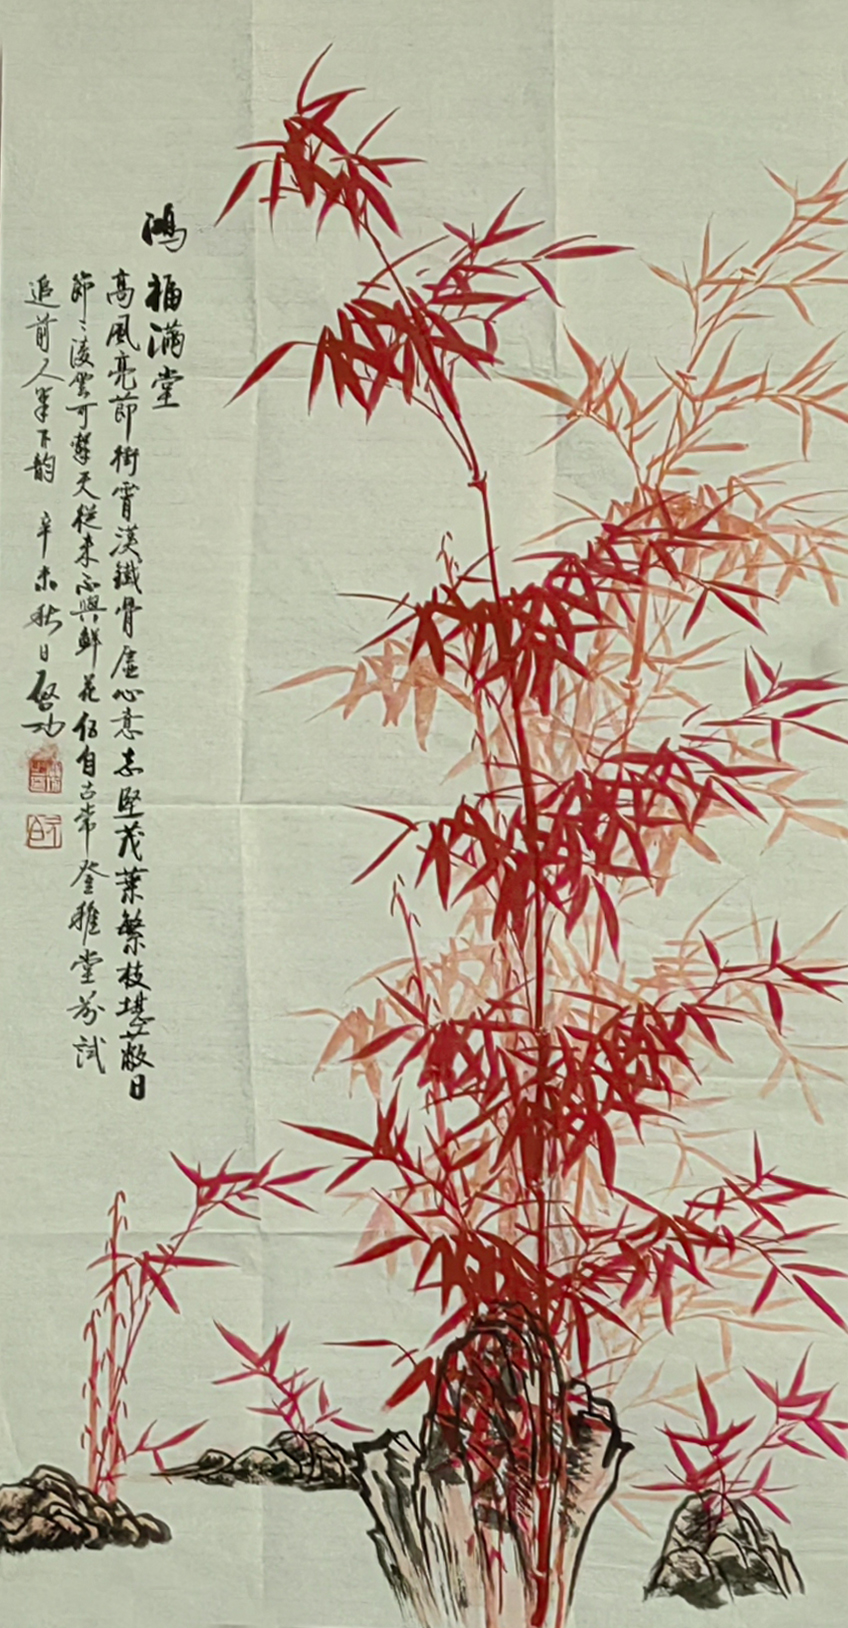 鴻福滿堂
高風亮節衝霄漢鐵骨虛心意志堅茂葉繁枝堪蔽日
節〻凌雲可擎天從來不與鮮花伍自古常登雅堂前試
追前人筆下韵 辛未秋日啓功